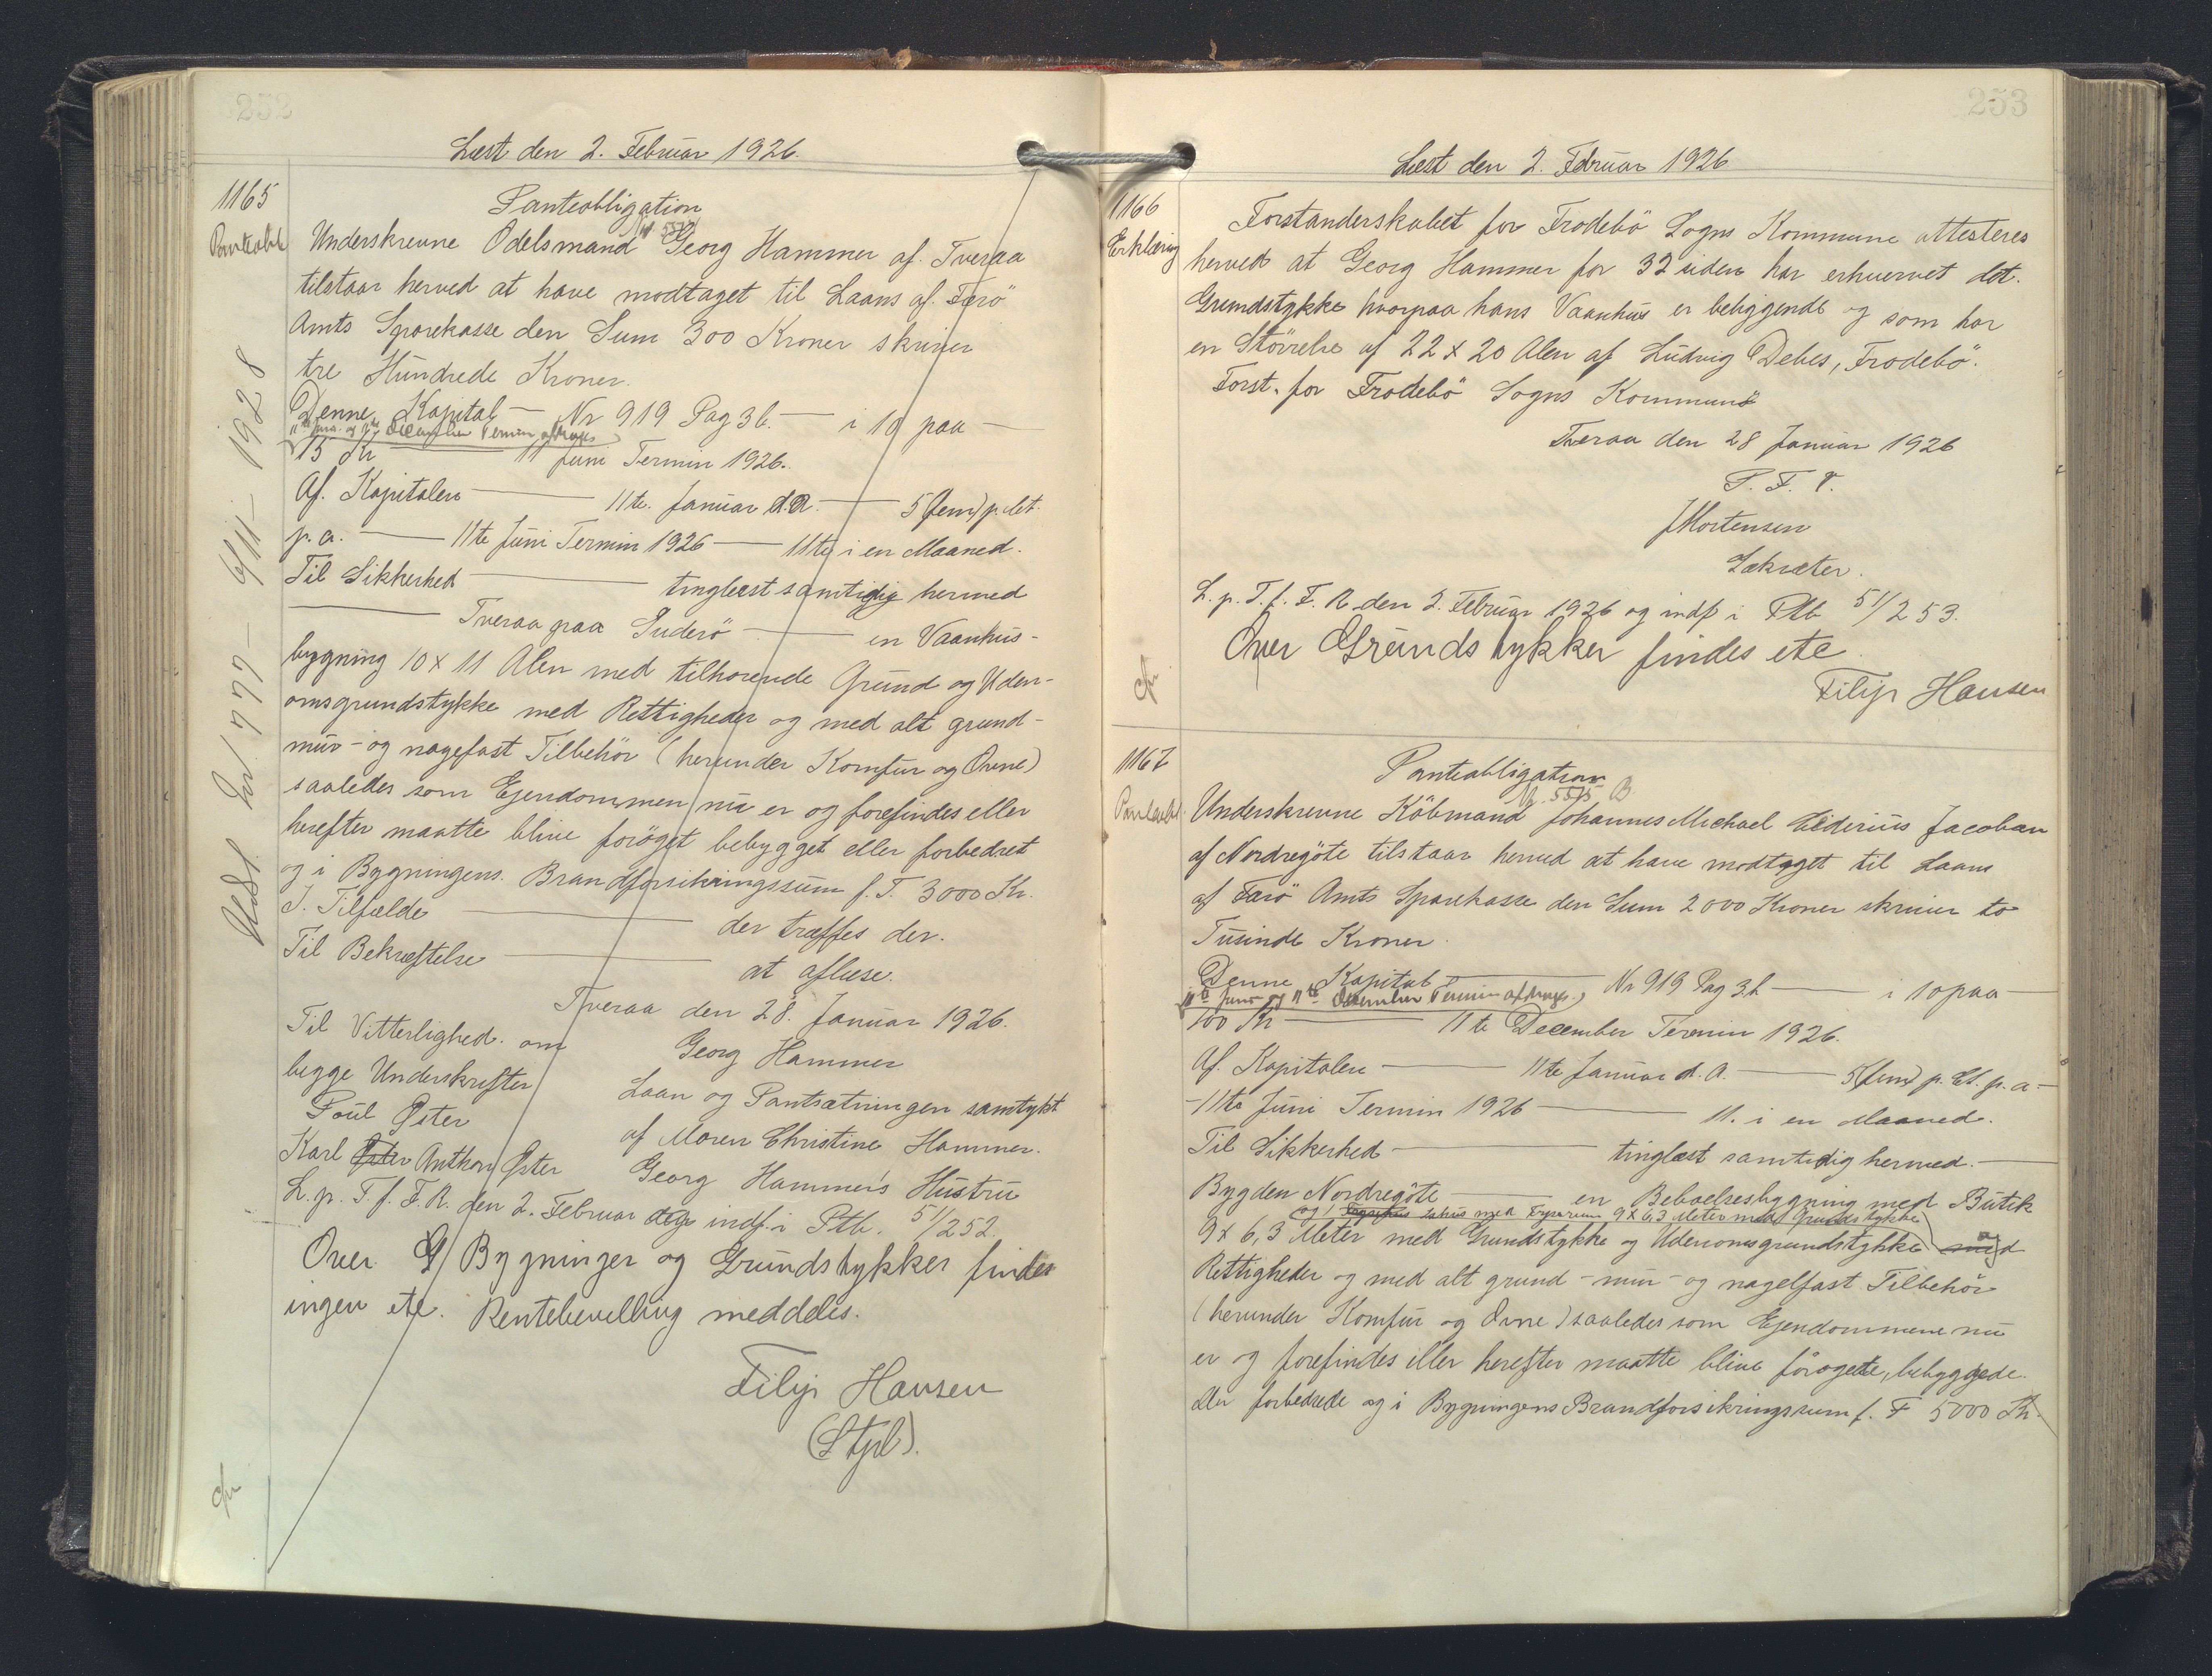 252
Læst den 2. Februar 1926.
1165
Panteobl
Panteobligation
Underskrevne Odelsmand Georg Hammer af Tveraa
tilstaar herved at have modtaget til Laans af Færö
Amts Sparekasse den Sum 300 Kroner skriver
tre Hundrede Kroner.
Denne Kapital — Nr 919 Pag 3b. — i 10 paa —
11te Juni og 11te December Termin afdrages
15 Kr — 11 Juni Termin 1926.
Af Kapitalen — 11te. Januar d.A. — 5 (fem) p. Ct.
p.a. — 11te Juni Termin 1926 — 11te i en Maaned.
Til Sikkerhed — tinglæst samtidig hermed
— Tveraa paa Suderö — en Vaanhus-
bygning 10 x 11 Alen med tilhorende Grund og Uden-
omsgrundstykke med Rettigheder og med alt grund-
mur- og nagefast Tilbehör (herunder Komfur og Ovne)
saaledes som Ejendommen nu er og forefindes eller
herefter maatte blive foröget bebygget eller forbedret
og i Bygningens Brandforsikringssum f. T. 3000 Kr.
I. Tilfælde — der træffes der.
Til Bekræftelse — at aflæse.
Tveraa den 28. Januar 1926.
Til Vitterlighed om
Georg Hammer
begge Underskrifter
Laan og Pantsætningen samtykt
Poul Øster
af Maren Christine Hammer.
Karl Øster Anthon Øster
Georg Hammer's Hustru
L. p. T. f. F. R. den 2. Februar indf. i Ptb. 51/252.
Over Bygninger og Grundstykker findes
ingen etc. Rentebevilling meddeles.
Filip Hansen
(Stpl).
Udsl. Nr 777 - 6/11 - 1928
253
Læst den 2. Februar 1926
1166
Erklæring
Forstanderskabet for Frodebö Sogns Kommune attesteres
herved at Georg Hammer for 32 siden har erhvervet det.
Grundstykke hvorpaa hans Vaanhus er beliggende og som har
en Störrelse af 22 x 20 Alen af Ludvig Debes, Frodebö.
Forst. for Frodebö Sogns Kommune
Tveraa den 28 Januar 1926
P. F. V.
J Mortensen
Sekretær.
L. p. T. f. F. R. den 2. Februar 1926 og indf i Ptb 51/253.
Over Grundstykker findes etc
Filip Hansen
1167
Panteobl.
Panteobligation
Underskrevne Köbmand Johannes Michael Elderius Jacobsen
af Nordregöte tilstaar herved at have modtaget til Laans
af Færö Amts Sparekasse den Sum 2000 Kroner skriver to
Tusinde Kroner.
Denne Kapital — Nr 919 Pag 3b — i 10 paa —
11te Juni og 11te December Termin afdrages
100 Kr — 11te December Termin 1926.
Af Kapitalen — 11te Januar d. A. — 5 (fem) p. Ct. p. a. —
- 11te Juni Termin 1926 — 11. i en Maaned.
Til Sikkerhed — tinglæst samtidig hermed. —
Bygden Nordregöte — en Beboelsesbygning med Butik
og 9 x 6,3 Meter med Grundstykke
9 x 6,3 Meter med Grundstykke og Udenomsgrundstykke med
Rettigheder og med alt grund- mur- og nagelfast Tilbehör
(herunder Komfur og Ovne) saaledes som Ejendommene nu
er og forefindes eller herefter maatte blive forogede, bebyggede
eller forbedrede og i Bygningens Brandforsikringssum f. T 5000 Kr.